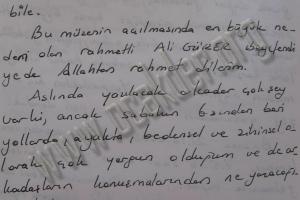 bile.
Bu müzenin açılmasında en büyük ne-
deni olan rahmetli Ali GÜRER beyefendi
yede Allahtan rahmet dilerim.
Aslında yazılacak okadar çok şey
varki, ancak sabahın beşinden beri
yollarda, ayakta, bedensel ve zihinsel o-
larak çok yorgun olduğum ve de ar-
kadaşların konuşmalarından ne yazacağı